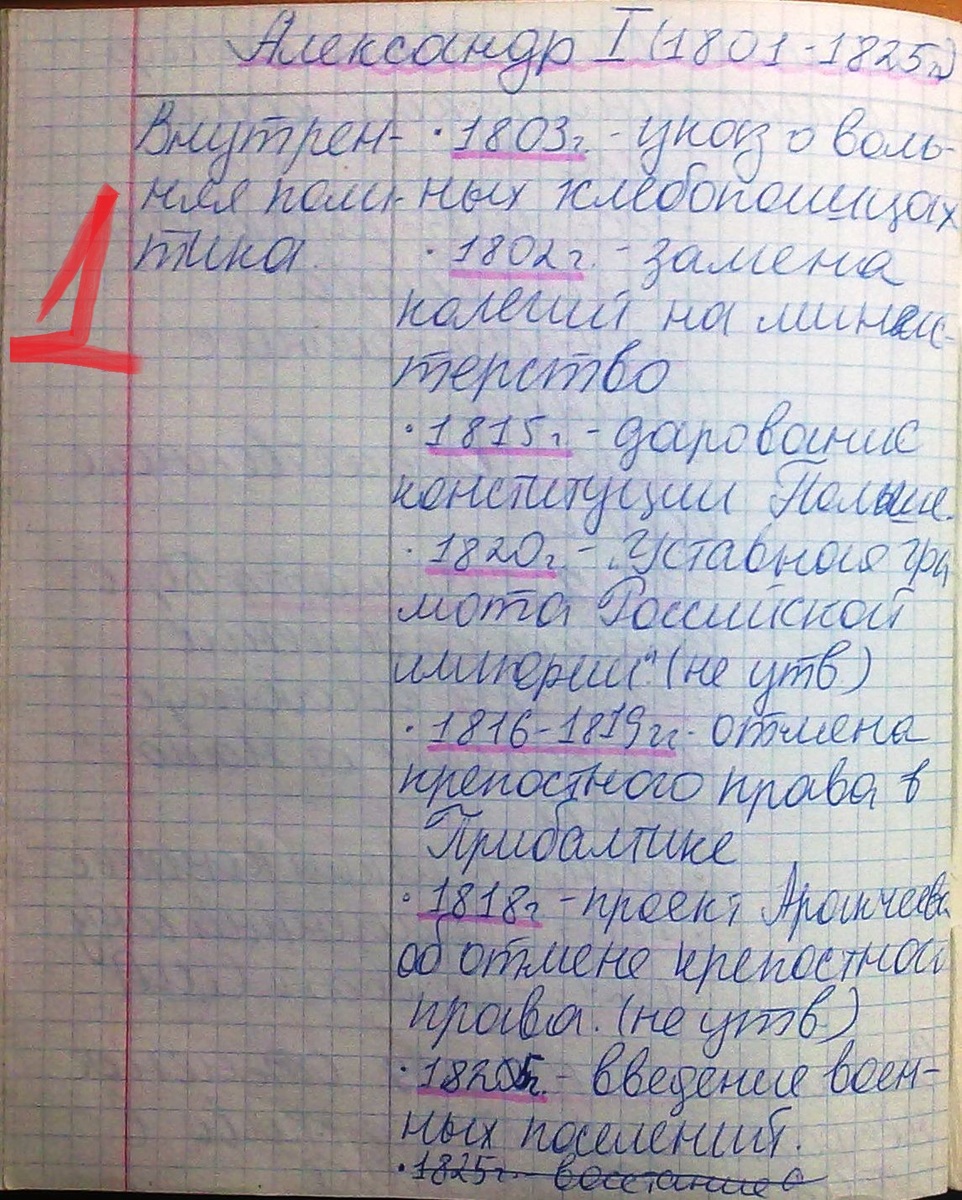 Александр I (1801-1825г.)
Внутрен- · 1803г. - указ о воль-
няя поли- ных хлебопашцах
тика. · 1802г. - замена
1
колегий на минис-
терство
· 1815г. - дарование
конституции Польше.
· 1820г. - "Уставная гра
мота Российской
империи" (не утв.)
· 1816-1819гг. отмена
крепостного права в
Прибалтике
· 1818г. - проект Аракчеева
об отмене крепостного
права. (не утв.)
· 1820г. - введение воен-
ных поселений.
· 1825г. восстание